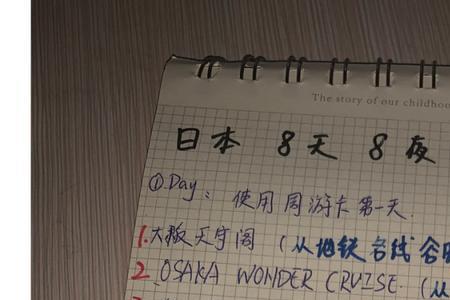 The story of our childhoo
日本 8天 8夜
①Day: 使用 周游卡第一天.
1.大阪天守阁 (从地铁各线谷
2.OSAKA WONDER CRUISE. (从